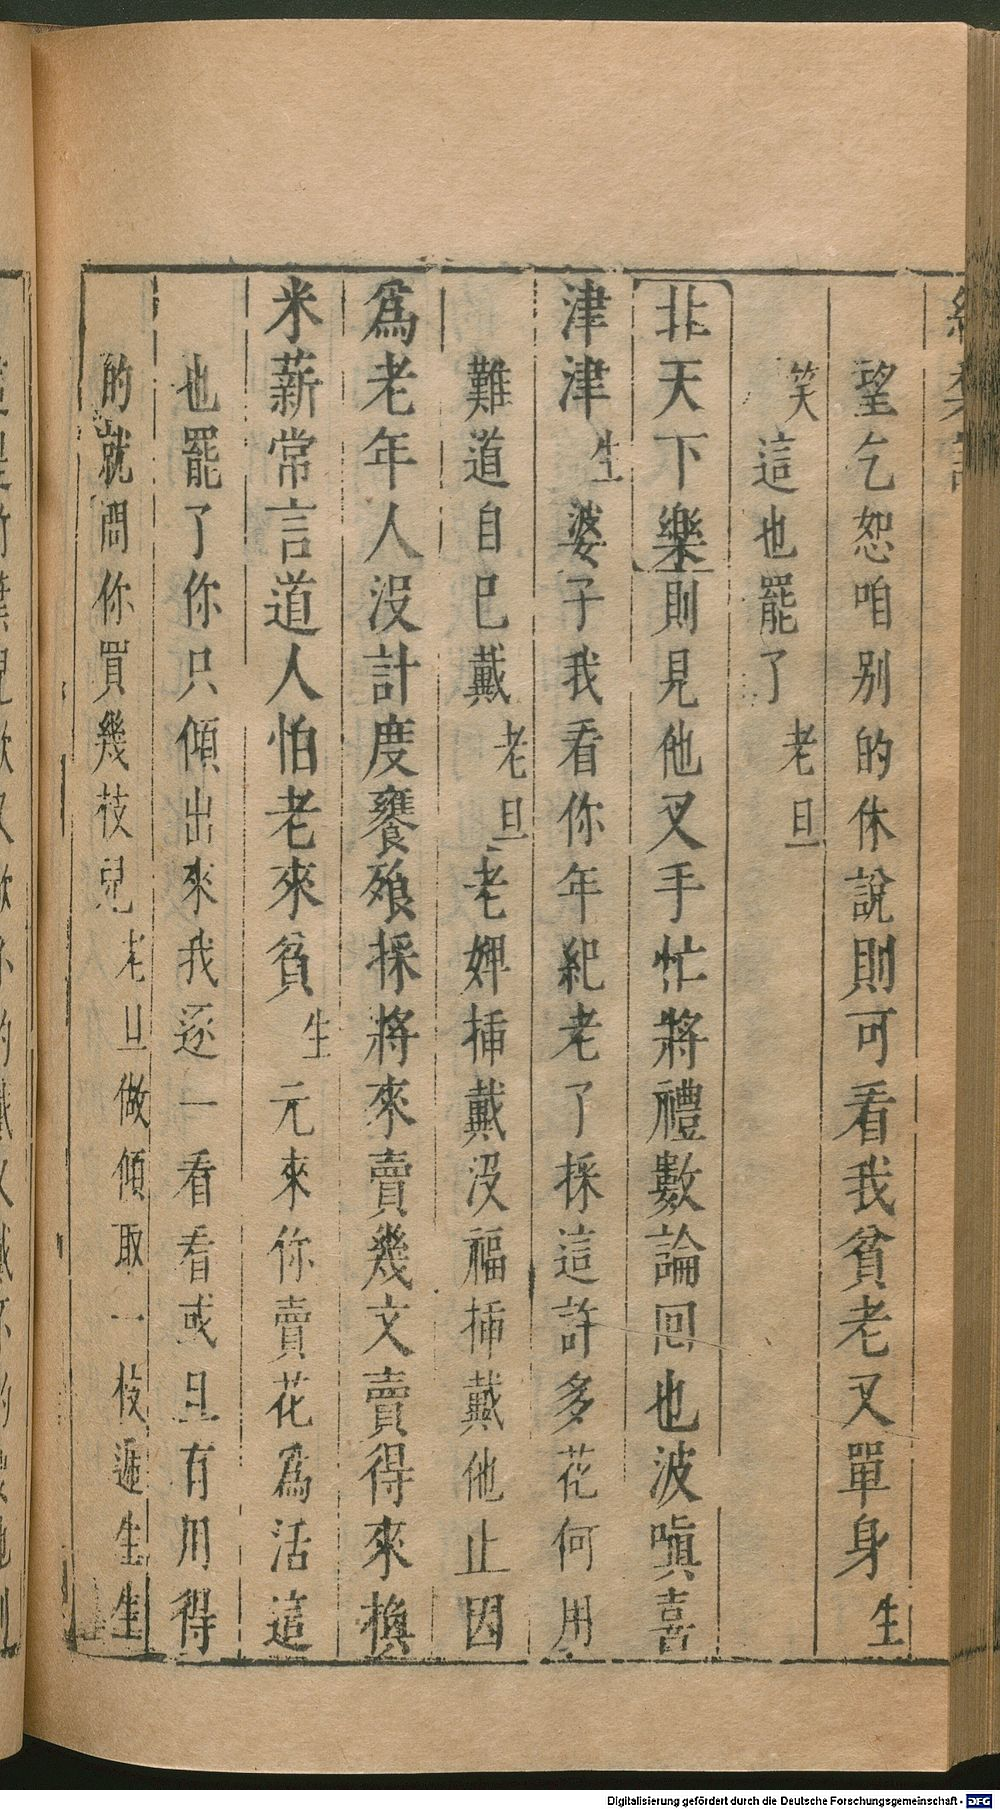 望乞恕咱别的休說則可看我貧老又單身生
笑這也罷了老旦
北天下樂則見他叉手忙將禮數論回也波嗔喜
津津生婆子我看你年紀老了採這許多花何用
難道自己戴老旦老婢揷戴没福揷戴他止因
爲老年人没計度饔飧採將來賣幾文賣得來換
米薪常言道人怕老來貧生元來你賣花爲活這
也罷了你只傾出來我逐一看看或且有用得
的就問你買幾枝兒老旦做傾取一枝遞生生
Digitalisierung gefördert durch die Deutsche Forschungsgemeinschaft - DFG